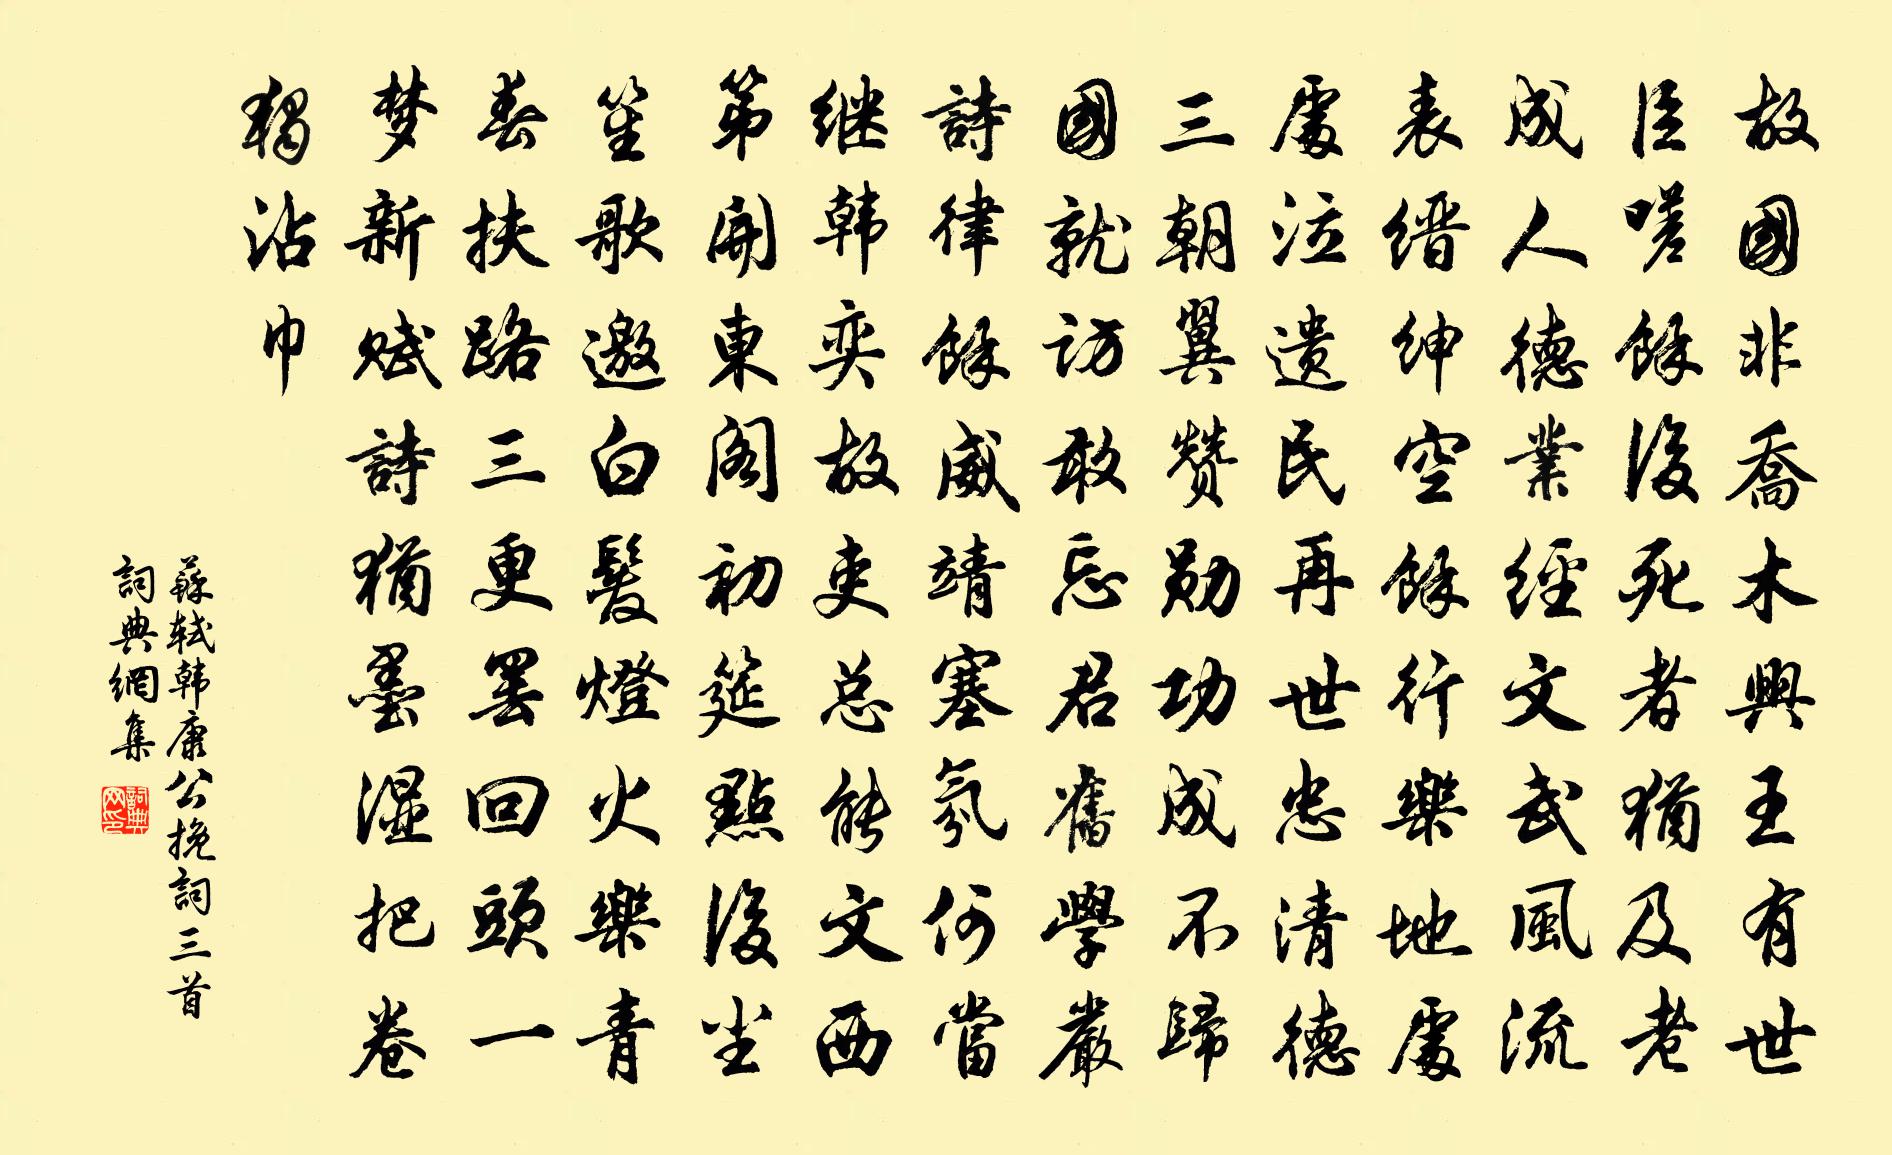 故國非喬木興王有世
臣嗟餘後死者猶及老
成人德業經文武風流
表缙紳空餘行樂地處
處泣遺民再世忠清德
三朝翼赞勋功成不歸
國就訪敢忘君舊學嚴
詩律餘威靖塞氛何當
继韩奕故吏总能文西
第開東閣初筵點後坐
笙歌邀白髮燈火樂青
春扶路三更罢回頭一
梦新赋詩猶墨濕把卷
獨沾巾
蘇轼韩康公挽詞三首
詞典網集
詞典网印